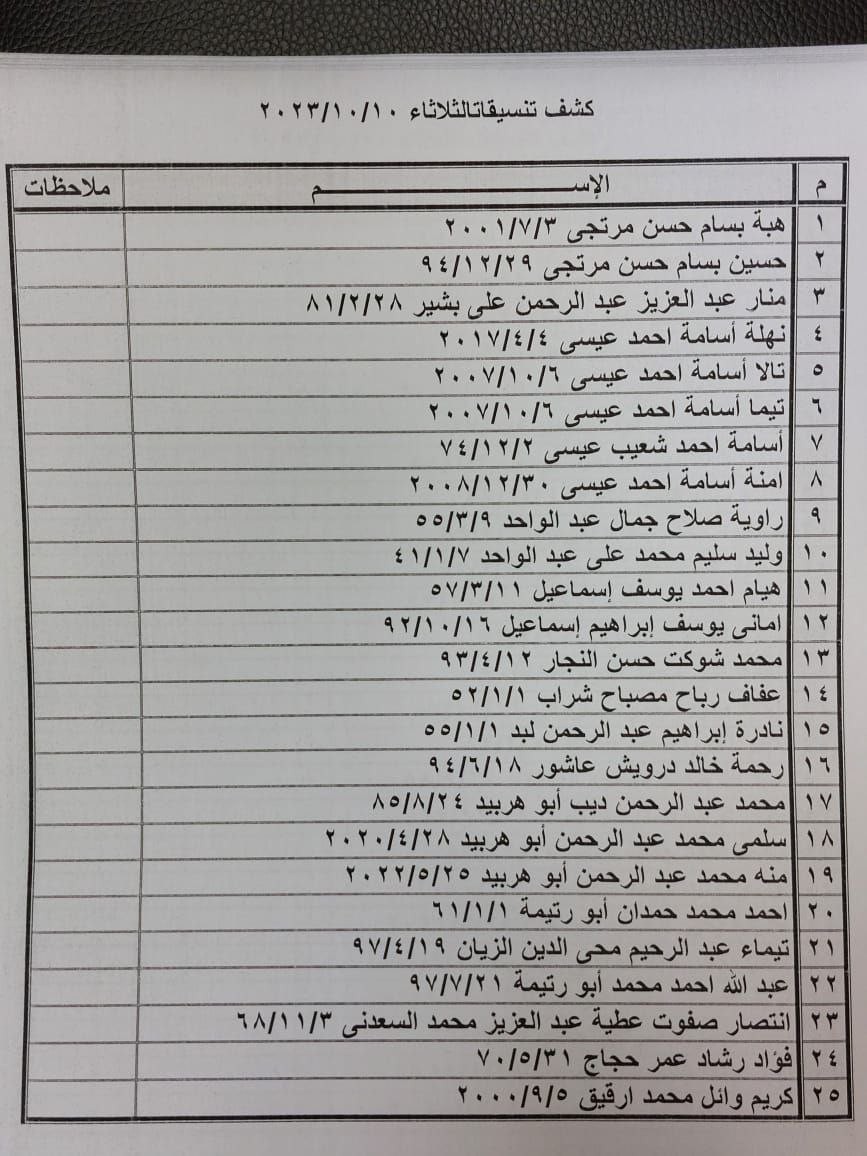 كشف تنسيقاتالثلاثاء ٢٠٢٣/١٠/١٠
م الإســـــــــــــــم ملاحظات
١ هبة بسام حسن مرتجى ٢٠٠١/٧/٣
٢ حسين بسام حسن مرتجى ٩٤/١٢/٢٩
٣ منار عبد العزيز عبد الرحمن على بشير ٨١/٢/٢٨
٤ نهلة أسامة احمد عيسى ٢٠١٧/٤/٤
٥ تالا أسامة احمد عيسى ٢٠٠٧/١٠/٦
٦ تيما أسامة احمد عيسى ٢٠٠٧/١٠/٦
٧ أسامة احمد شعيب عيسى ٧٤/١٢/٢
٨ امنة أسامة احمد عيسى ٢٠٠٨/١٢/٣٠
٩ راوية صلاح جمال عبد الواحد ٥٥/٣/٩
١٠ وليد سليم محمد على عبد الواحد ٤١/١/٧
١١ هيام احمد يوسف إسماعيل ٥٧/٣/١١
١٢ امانى يوسف إبراهيم إسماعيل ٩٢/١٠/١٦
١٣ محمد شوكت حسن النجار ٩٣/٤/١٢
١٤ عفاف رباح مصباح شراب ٥٢/١/١
١٥ نادرة إبراهيم عبد الرحمن لبد ٥٥/١/١
١٦ رحمة خالد درويش عاشور ٩٤/٦/١٨
١٧ محمد عبد الرحمن ديب أبو هربيد ٨٥/٨/٢٤
١٨ سلمى محمد عبد الرحمن أبو هربيد ٢٠٢٠/٤/٢٨
١٩ منه محمد عبد الرحمن أبو هربيد ٢٠٢٢/٥/٢٥
٢٠ احمد محمد حمدان أبو رتيمة ٦١/١/١
٢١ تيماء عبد الرحيم محى الدين الزيان ٩٧/٤/١٩
٢٢ عبد الله احمد محمد أبو رتيمة ٩٧/٧/٢١
٢٣ انتصار صفوت عطية عبد العزيز محمد السعدنى ٦٨/١١/٣
٢٤ فؤاد رشاد عمر حجاج ٧٠/٥/٣١
٢٥ كريم وائل محمد ارقيق ٢٠٠٠/٩/٥